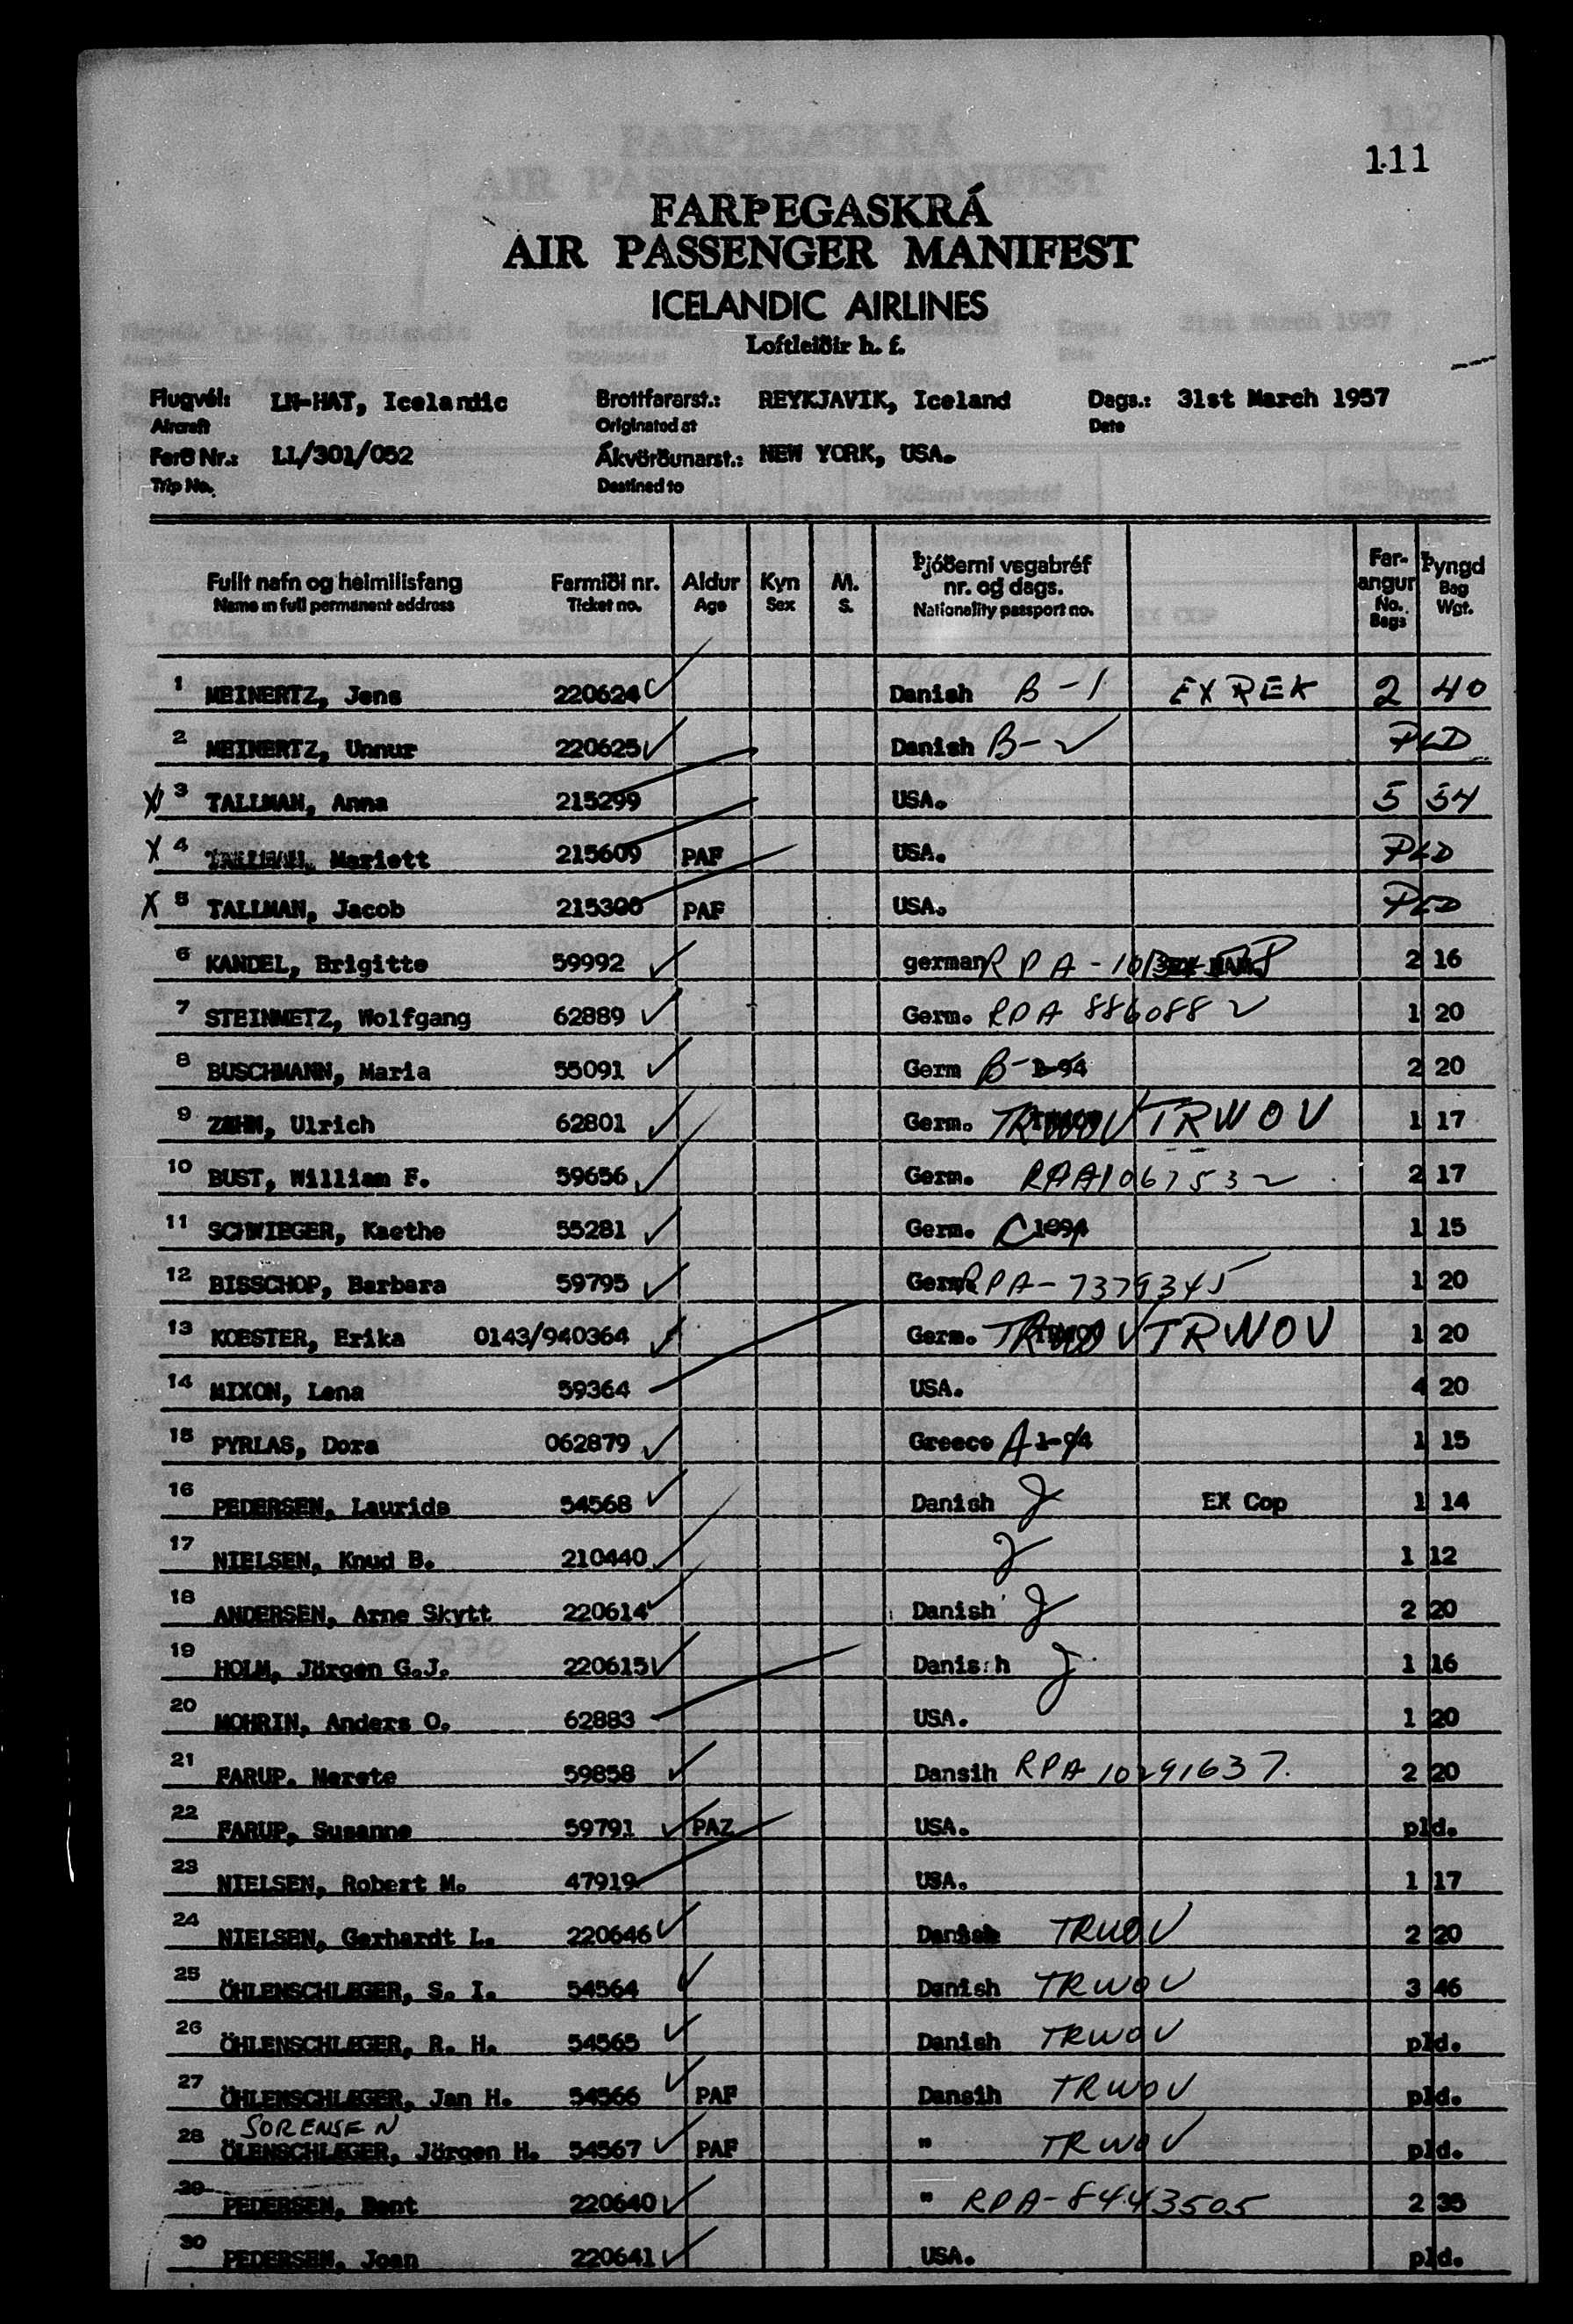 111
FARÞEGASKRÁ
AIR PASSENGER MANIFEST
ICELANDIC AIRLINES
Loftleiðir h. f.
Flugvél: LN-HAT, Icelandic Brottfararst.: REYKJAVIK, Iceland Dags.: 31st March 1957
Aircraft Originated at Date
Ferð Nr.: LL/301/052 Ákvörðunarst.: NEW YORK, USA.
Trip No. Destined to
Fullt nafn og heimilisfang Farmiði nr. Aldur Kyn M. Þjóðerni vegabréf nr. og dags. Far- angur Þyngd
Name in full permanent address Ticket no. Age Sex S. Nationality passport no. No. Bags Bag Wgt.
1 MEINERTZ, Jens 220624 Danish B-1 EX REK 2 40
2 MEINERTZ, Unnur 220625 Danish B- PLD
X 3 TALLMAN, Anna 215299 USA. 5 54
X 4 TALLMAN, Mariett 215609 PAF USA. PLD
X 5 TALLMAN, Jacob 215300 PAF USA. PLD
6 KANDEL, Brigitte 59992 german RPA- 2 16
7 STEINMETZ, Wolfgang 62889 Germ. RPA 886088 2 1 20
8 BUSCHMANN, Maria 55091 Germ B- 1-94 2 20
9 ZAHN, Ulrich 62801 Germ. TRWOV TRWOV 1 17
10 BUST, William F. 59656 Germ. RPA1067532 2 17
11 SCHWIEGER, Kaethe 55281 Germ. C 1-94 1 15
12 BISSCHOP, Barbara 59795 Germ RPA-7379345 1 20
13 KOESTER, Erika 0143/940364 Germ. TRWOV TRWOV 1 20
14 MIXON, Lena 59364 USA. 4 20
15 PYRLAS, Dora 062879 Greece A 1-94 1 15
16 PEDERSEN, Laurids 54568 Danish J EX Cop 1 14
17 NIELSEN, Knud B. 210440 J 1 12
18 ANDERSEN, Arne Skytt 220614 Danish J 2 20
19 HOLM, Jürgen G.J. 220615 Danish J 1 16
20 MOHRIN, Anders O. 62883 USA. 1 20
21 FARUP. Merete 59858 Dansih RPA 10291637. 2 20
22 FARUP, Susanne 59791 PAZ USA. pld.
23 NIELSEN, Robert M. 47919 USA. 1 17
24 NIELSEN, Gerhardt L. 220646 Danish TRWOV 2 20
25 ÖHLENSCHLÆGER, S. I. 54564 Danish TRWOV 3 46
26 ÖHLENSCHLÆGER, R. H. 54565 Danish TRWOV pld.
27 ÖHLENSCHLÆGER, Jan H. 54566 PAF Dansih TRWOV pld.
SORENSEN
28 ÖLENSCHLÆGER, Jörgen H. 54567 PAF " TRWOV pld.
29 PEDERSEN, Bent 220640 " RPA-8443505 2 35
30 PEDERSEN, Joan 220641 USA. pld.